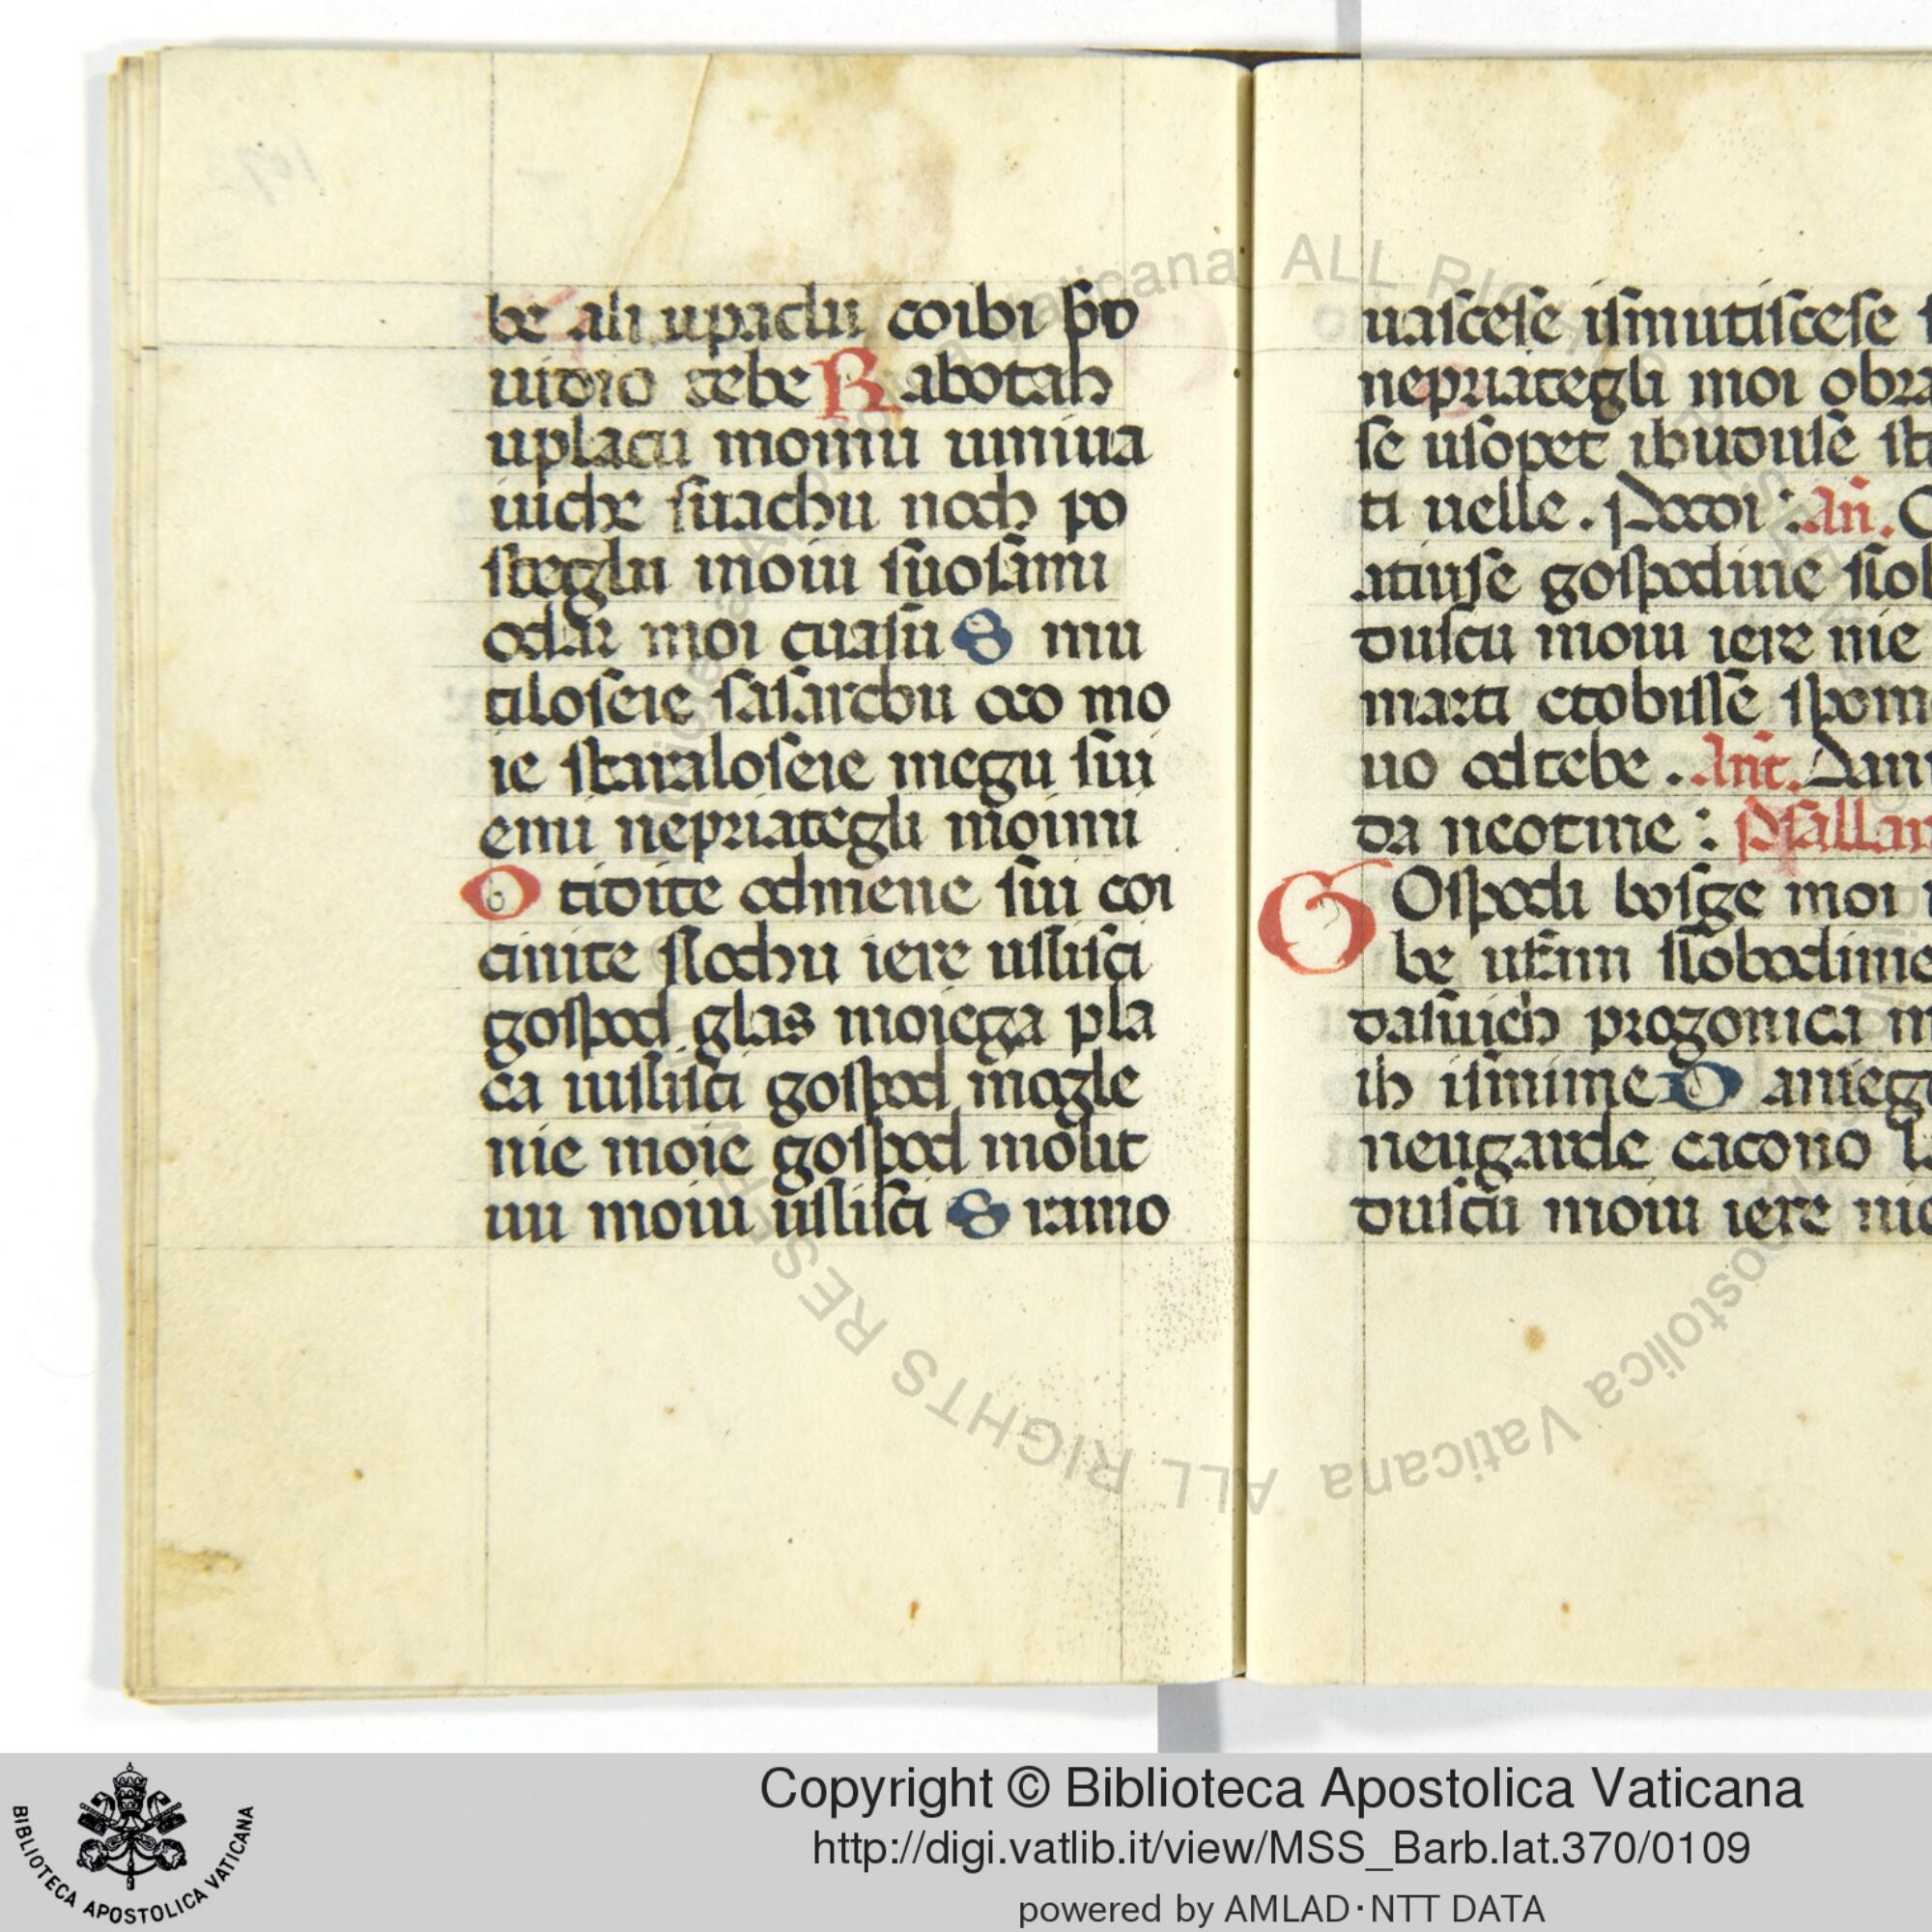 be ali upaclu coibi spo
uidio tebe Rabotah
uplacu momu umiua
uiche suachu noch po
steglu moiu suosami
odar moi cuasu S mu
tiloseie sasarchu oco mo
ie staraloseie megu sui
emi nepriategli moimi
O tidite odmene sui coi
cinite slochu iere uslisci
gospod glas moiega pla
ca uislisci gospod mogle
nie moie gospod molit
uu moiu uslisci S ramo
uascese ismutiscese
nepriategli moi obra
se usopet ibuduise
ti uelle. Pocoi : Añ.
atiuse gospodine slob
duscu moiu iere nie
marti ctobisse spom
uo odtebe. Ant. Dani
da neotme : Psallam
GOspodi bosge moi
be utêm slobodime
dasuich progonica m
ih ismime D anieg
neugarde cacono
duscu moiu iere nie
ALL RIGHTS RESERVED
Biblioteca Apostolica Vaticana
BIBLIOTECA APOSTOLICA VATICANA
Copyright © Biblioteca Apostolica Vaticana
http://digi.vatlib.it/view/MSS_Barb.lat.370/0109
powered by AMLAD·NTT DATA